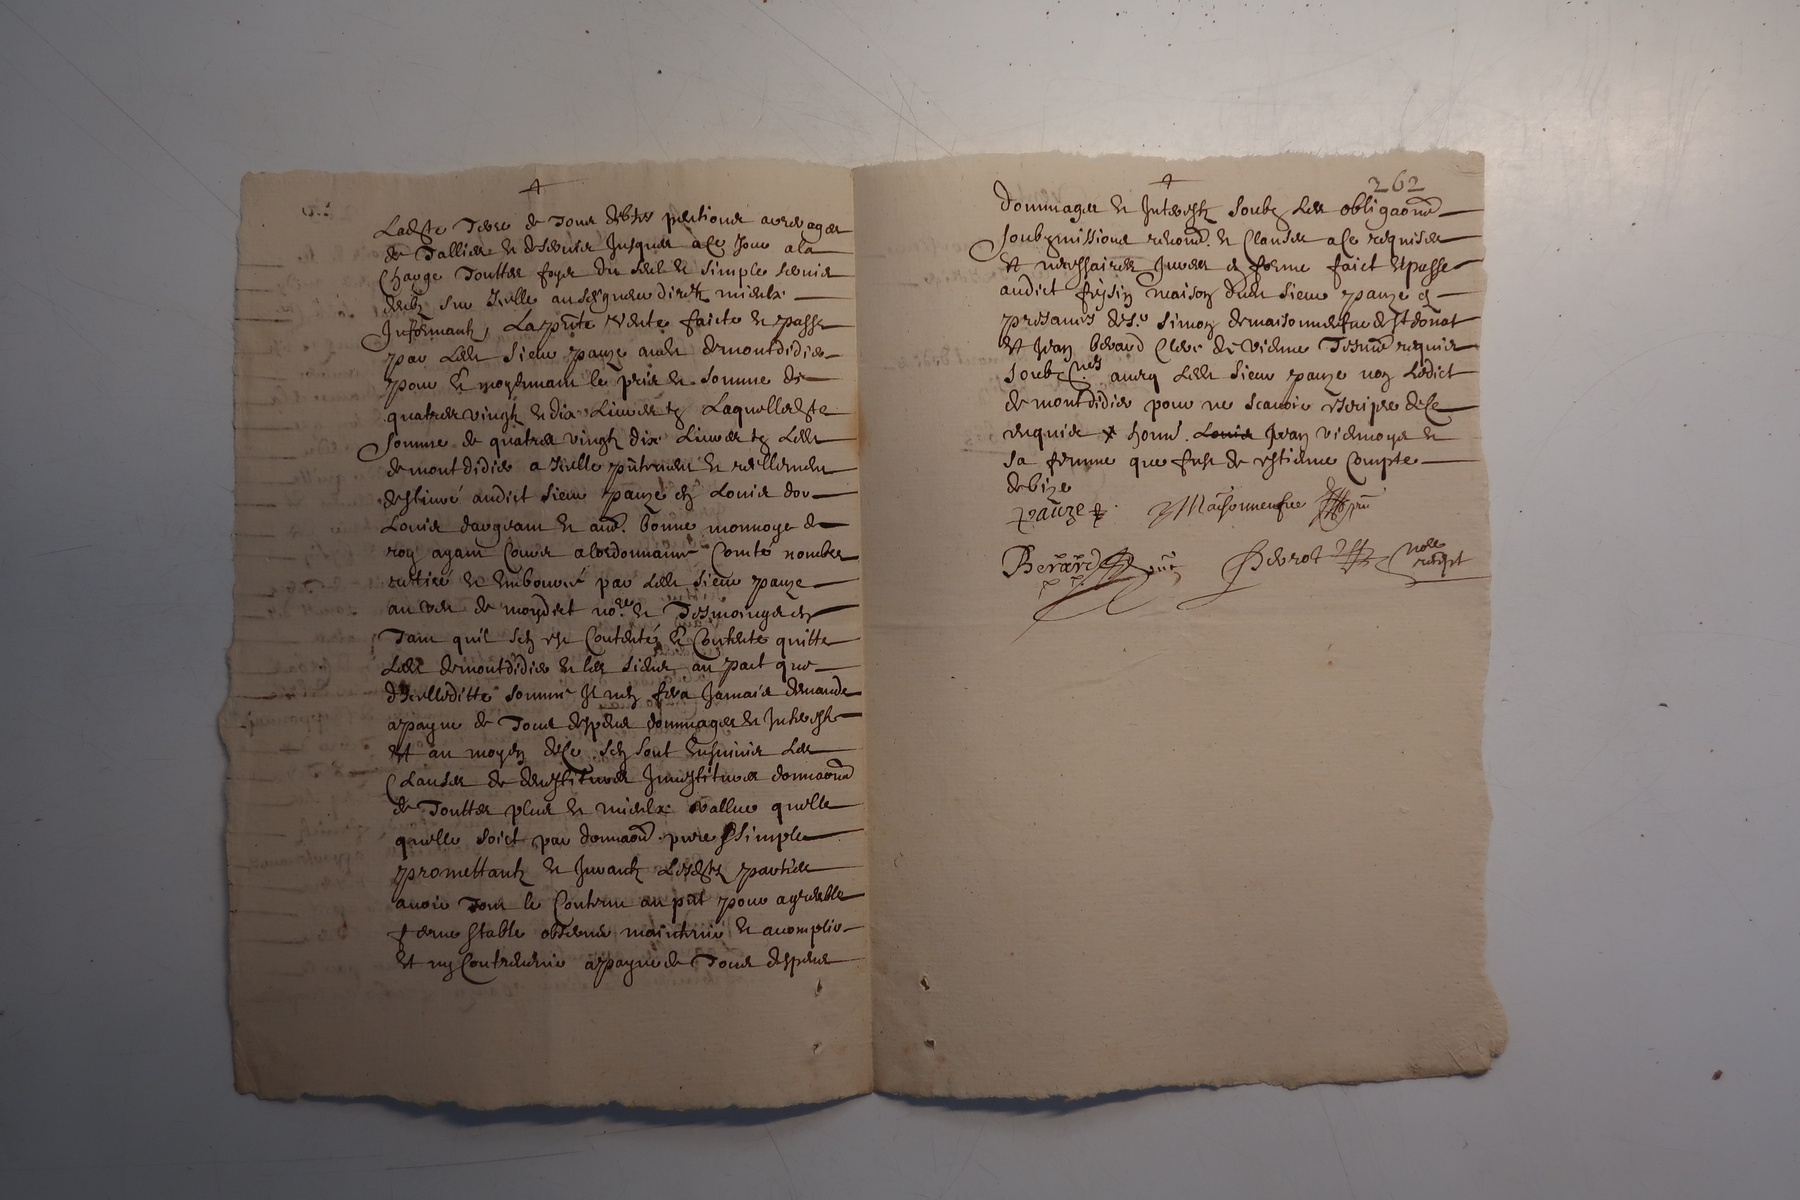 Ladite Terre de Tous debtes pentions arreyrages
de Tallies et deservis Jusques a ce Jour a la
Charge Touttes foys du seel et simple servis
deub sur Icelle au seigneur direct mieulx
Informant, La pnte vente faicte et passe
par ledt sieur pauze audt demontdidier
pour et moyenant le pris et somme de
quatres vingt et dix Livres tz Laquelle dite
somme de quatres vingt dix Livres tz Ledt
demontdidier a Icelle pntement et reellement
deslivré audict sieur pauze en Louis dor
Louis dargeant et aure bonne monnoye de
roy ayant Cours a lordonnance Comté nombré
retiré et Emboursé par Ledt sieur pauze
au veu de moydict nore et Tesmoings et
Tant quil sen est Contenté et Contente quitte
Ledt demontdidier et les siens, au pact que
dIcelleditte somme Il nen fera Jamais demande
a payne de Tous despens dommages et Interestz
Et au moyen de ce sen sont Ensuivis Les
Clauses de devestitures Investitures donnaons
de Touttes plus et mieulx vallue quelle
quelle soict par donnaon pure & simple
promettant et Jurant Lesdites parties
avoir Tout le Contenu au pnt pour agreable
ferme stable observer maintenir et acomplir
Et ny Contrevenir a payne de Tous despens
262
dommages et Interestz soubz Les obligaons
soubzmissions renons et Clauses a ce requises
et necessaires Jurees en forme faict et passe
audict feysin maison dudt sieur pauze en
presances de sr simon demaisonneufve de St donat
et Jean berard Clerc de vienne Tesms requis
soubznes avecq Ledt sieur pauze non Ledict
demontdidier pour ne scavoir escripre de ce
requis x honn. Louis Jean viennoys et
sa femme que fust de estienne Compte
debize
pauze Maisonneufve pnt
Berard pnt Perrot nore
recept